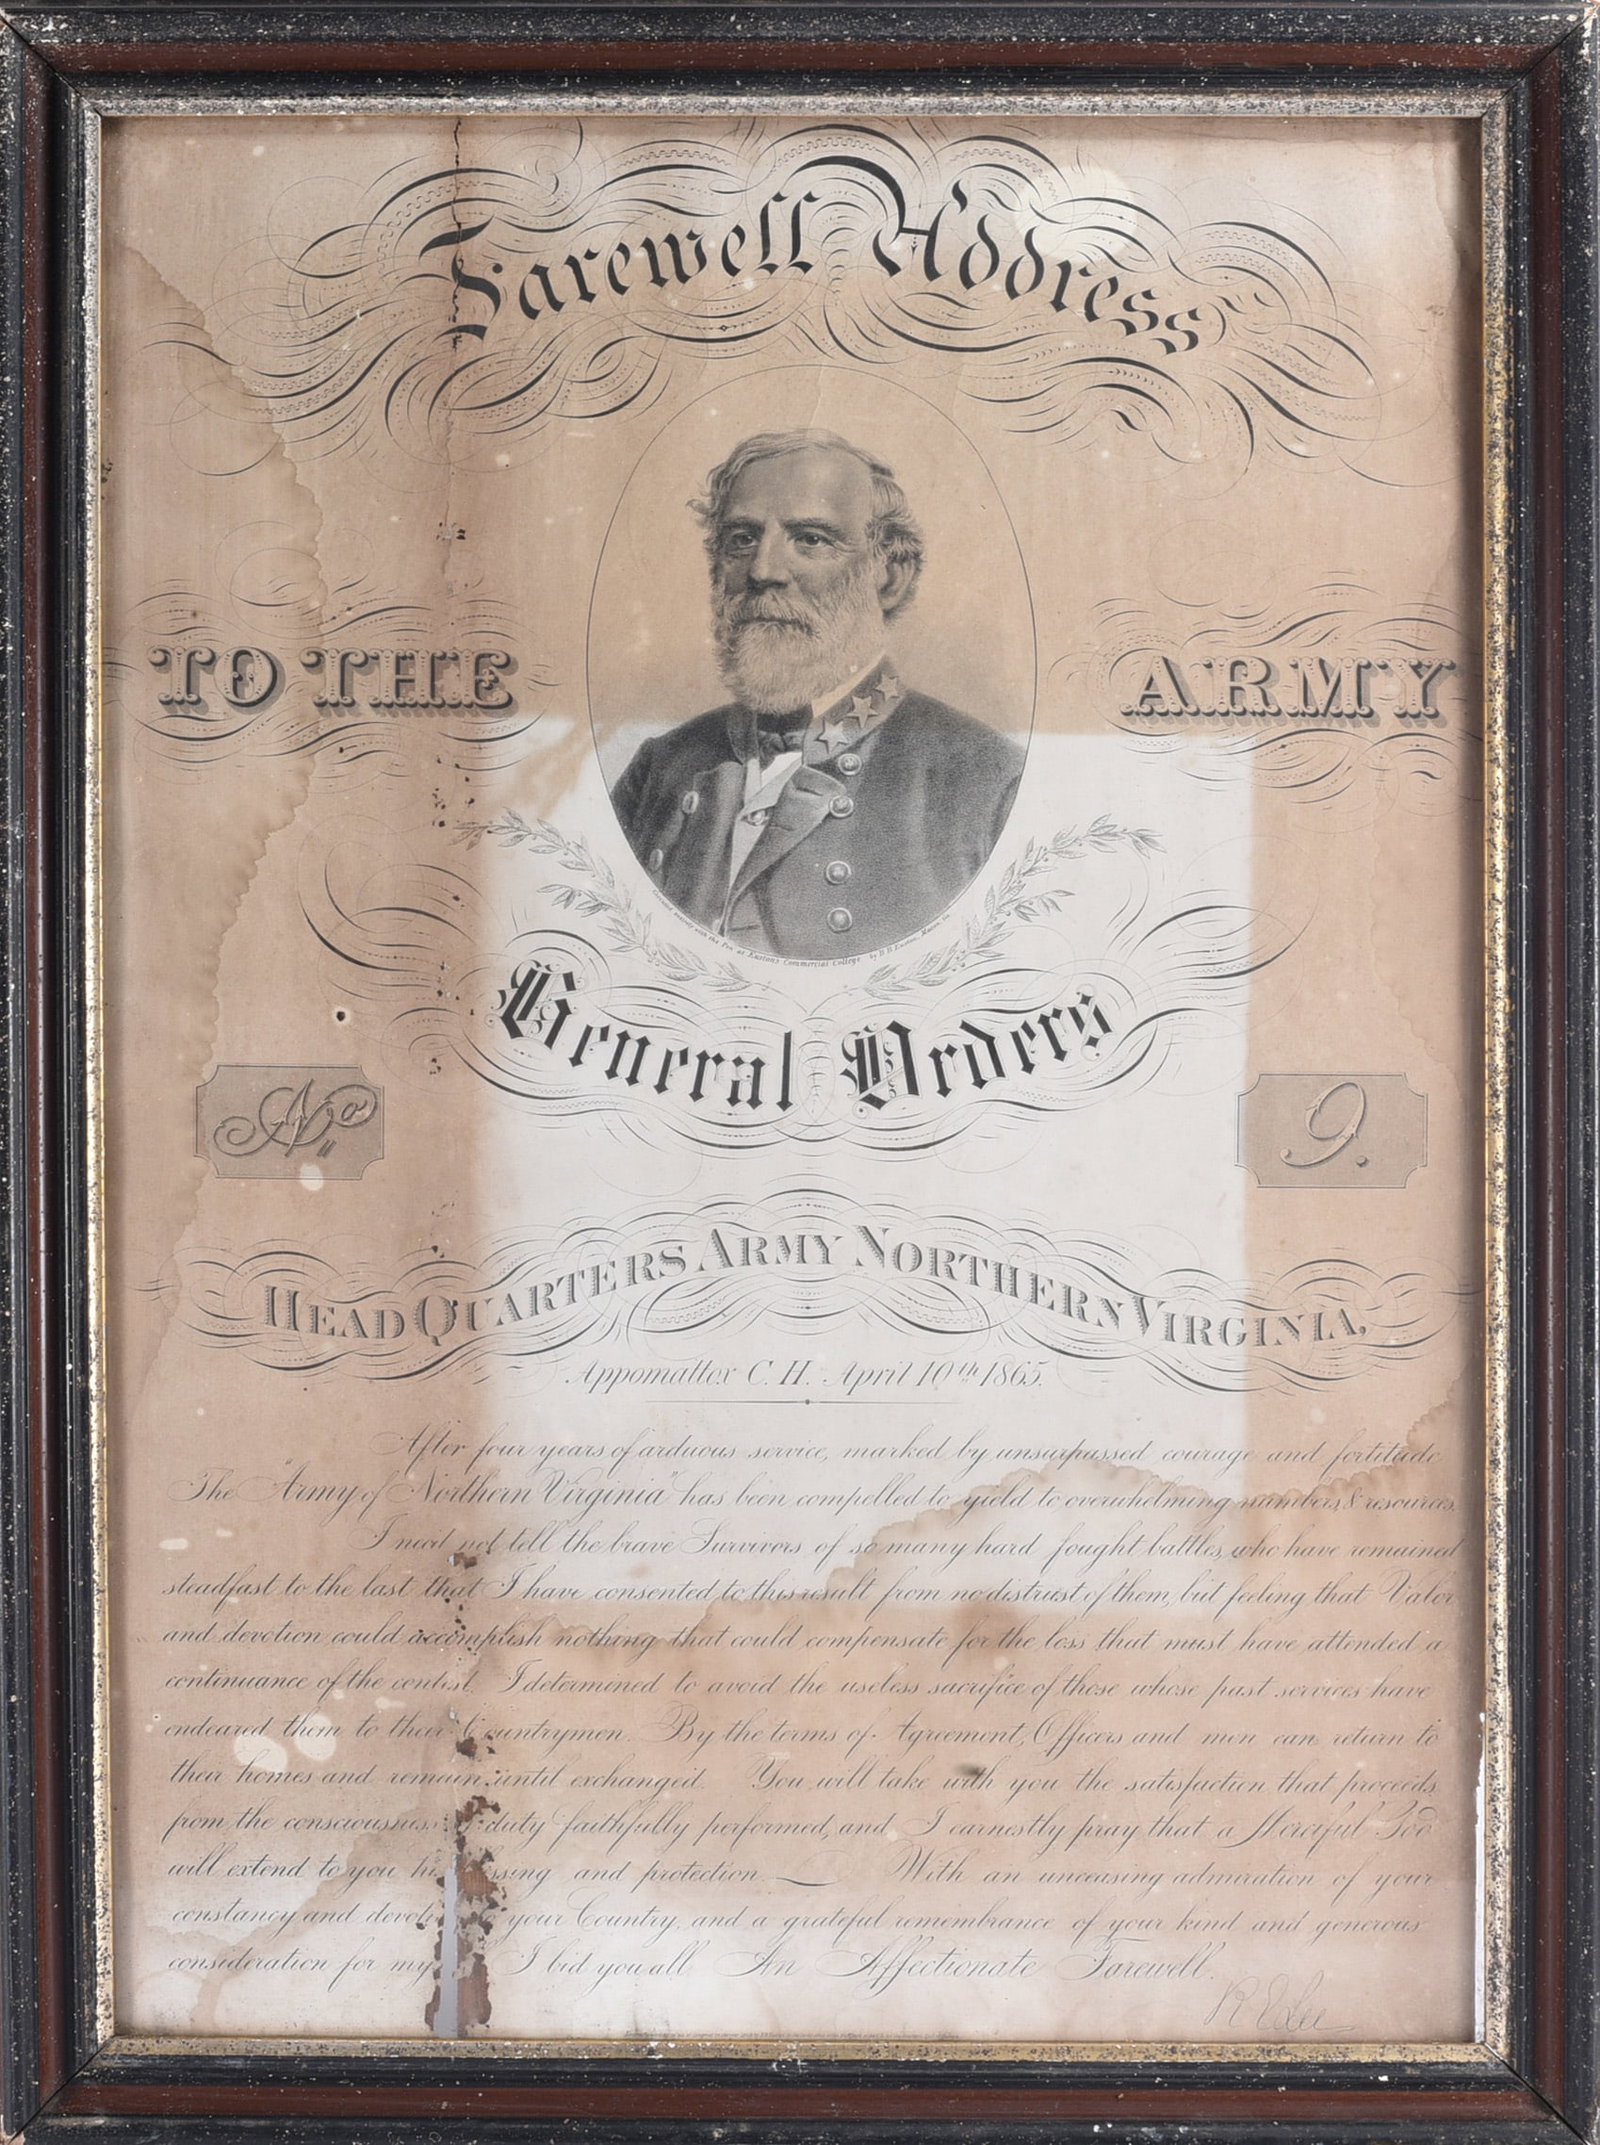 Farewell Address
TO THE ARMY
Executed entirely with the Pen at Eastons Commercial College by
General Orders
No 9.
HEAD QUARTERS ARMY NORTHERN VIRGINIA,
Appomattox C. H. April 10th 1865.
After four years of arduous service, marked by unsurpassed courage and fortitude
The "Army of Northern Virginia" has been compelled to yield to overwhelming numbers & resources.
I need not tell the brave Survivors of so many hard fought battles, who have remained
steadfast to the last that I have consented to this result from no distrust of them, but feeling that Valor
and devotion could accomplish nothing that could compensate for the loss that must have attended a
continuance of the contest, I determined to avoid the useless sacrifice of those whose past services have
endeared them to their Countrymen. By the terms of Agreement, Officers and men can return to
their homes and remain until exchanged. You will take with you the satisfaction that proceeds
from the consciousness of duty faithfully performed, and I earnestly pray that a Merciful God
will extend to you his and protection. With an unceasing admiration of your
constancy and your Country, and a grateful remembrance of your kind and generous
consideration for I bid you all An Affectionate Farewell.
R E Lee